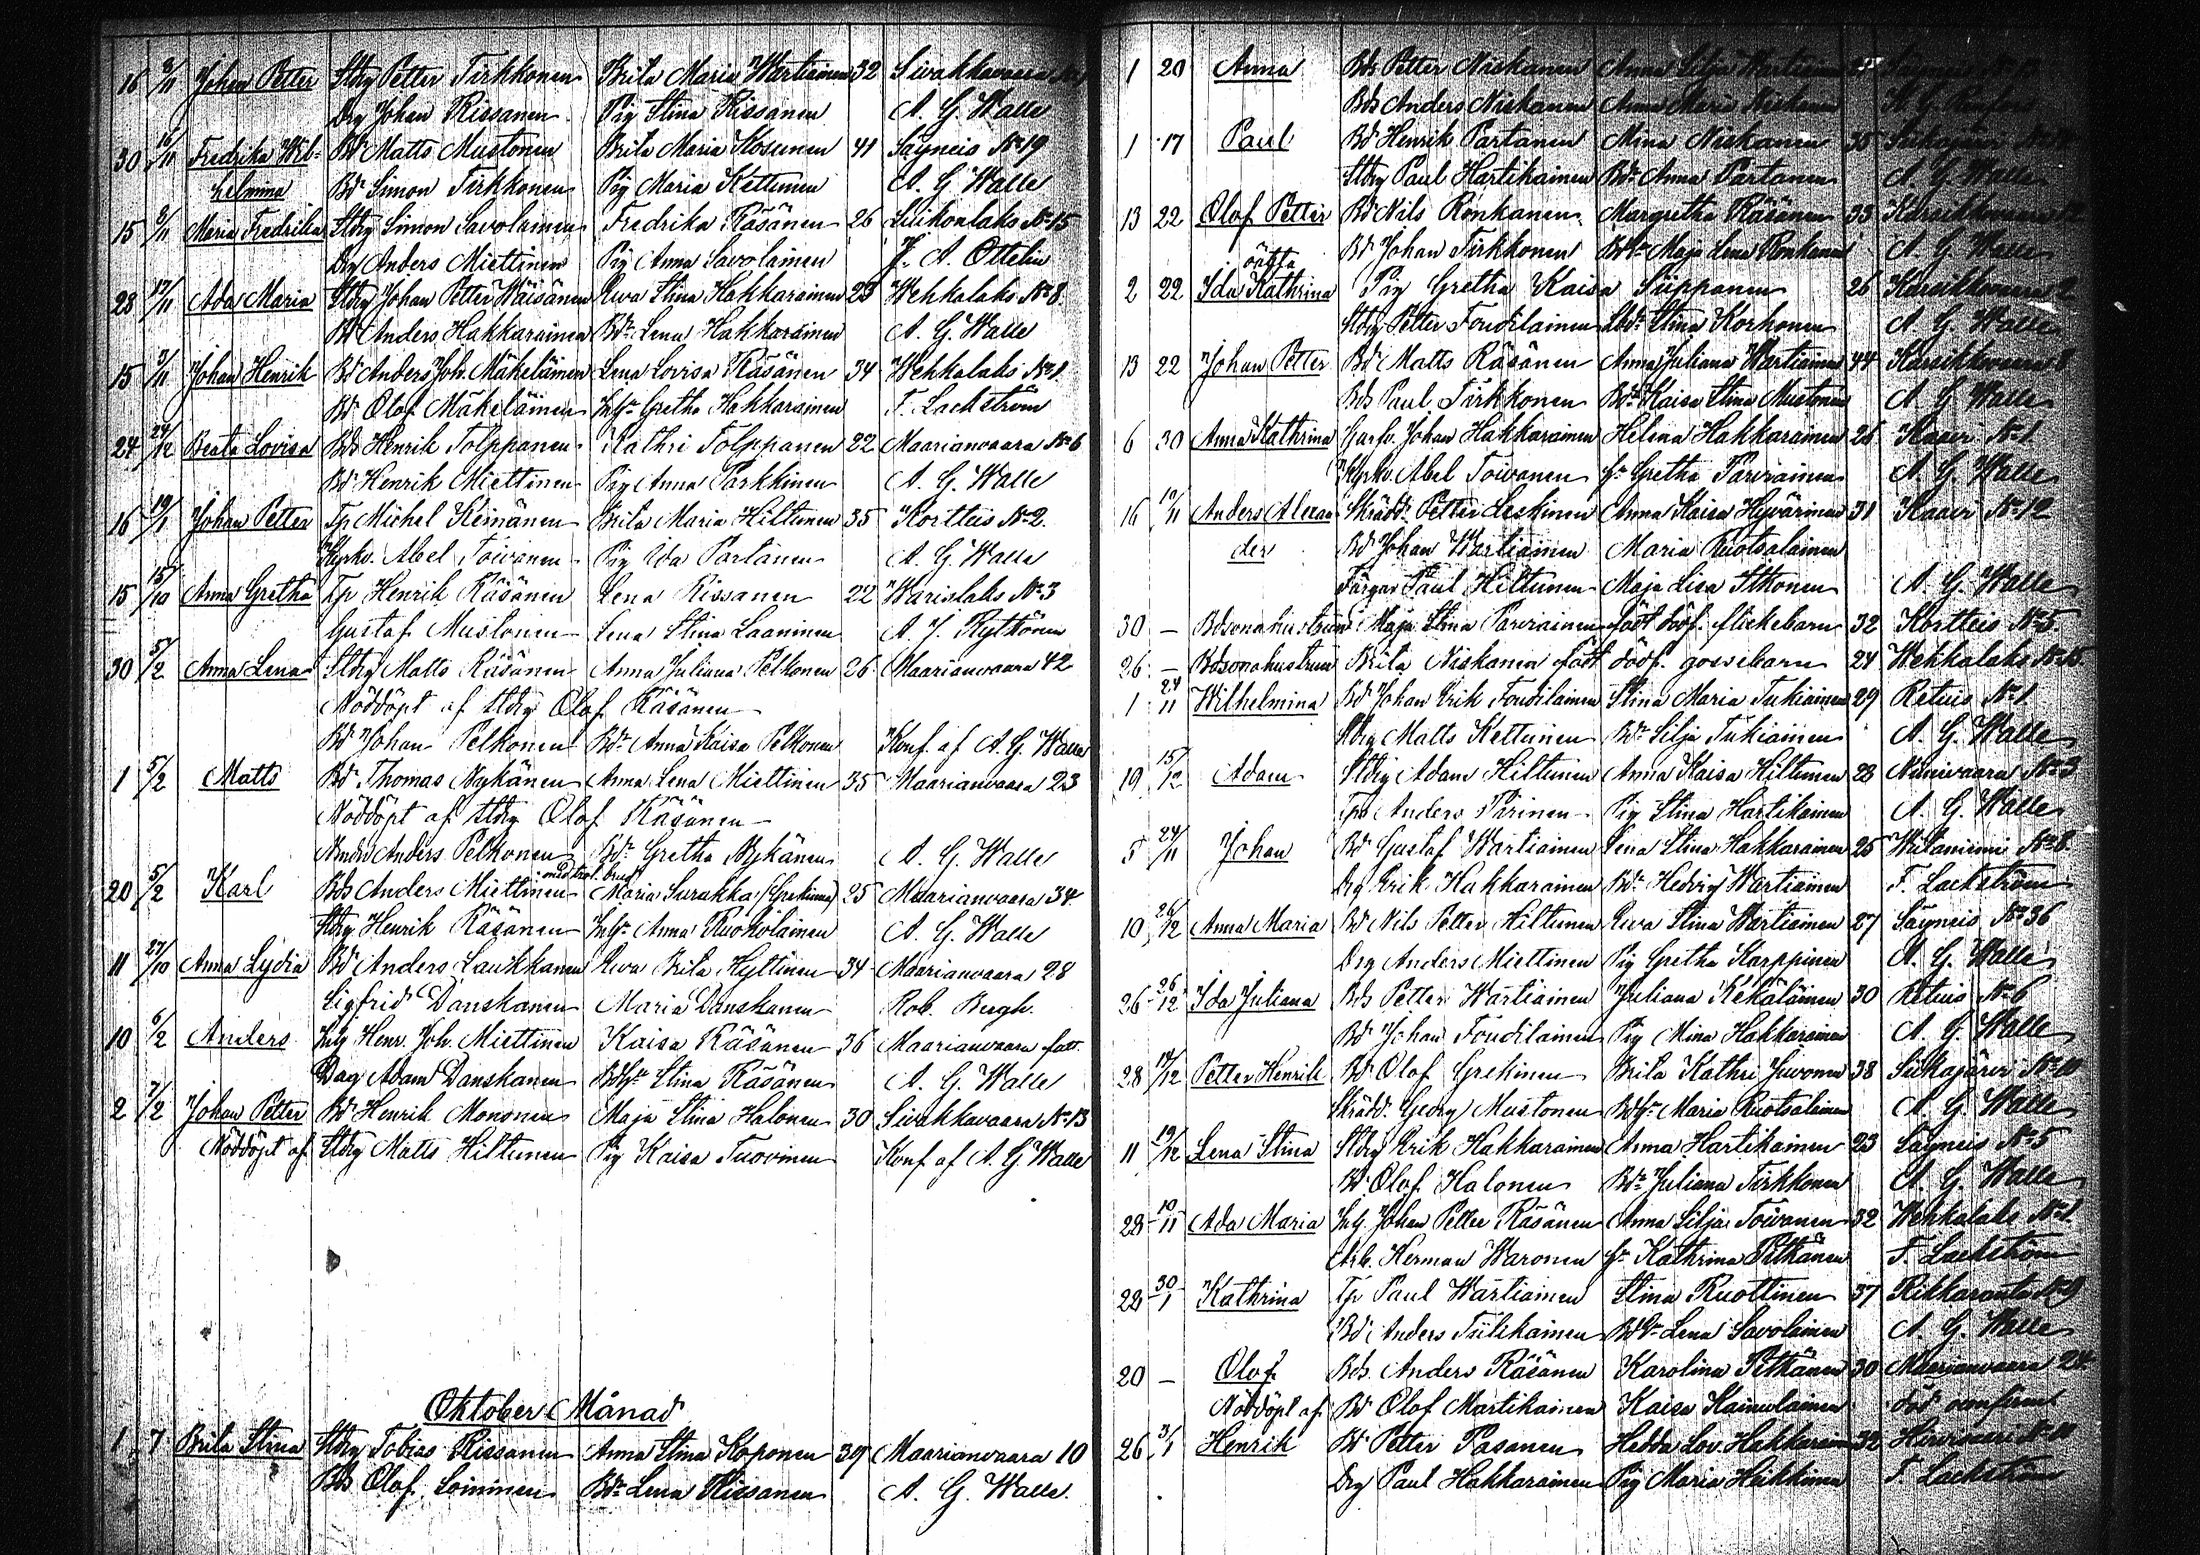 16 3/11 Johan Petter Stbg Petter Tirkkonen Brita Maria Wartiainen 32 Sivakkavaara
Drg Johan Rissanen Pig Stina Rissanen A. G. Walle
30 16/11 Fredrika Wil- Bd Matts Mustonen Brita Maria Kosunen 41 Säyneis No 19
helmina Bdr Simon Tirkkonen Pig Maria Kettunen A. G. Walle
15 3/11 Maria Fredrika Stbg Simon Savolainen Fredrika Räsänen 26 Luikonlaks No 15
Drg Anders Miettinen Pig Anna Savolainen J. A. Ottelin
28 17/11 Ada Maria Stbg Johan Petter Wäisänen Eeva Stina Hakkarainen 23 Wehkalaks No 8.
Bd Anders Hakkarainen Bdr Lena Hakkarainen A. G. Walle
15 3/11 Johan Henrik Bd Anders Joh. Mäkeläinen Lena Lovisa Räsänen 34 Wehkalaks No 1.
Bd Olof Mäkeläinen Inhn Gretha Hakkarainen F. Lackström
24 24/12 Beata Lovisa Bds Henrik Tolppanen Kathri Tolppanen 22 Maarianvaara No 6
Bd Henrik Miettinen Pig Anna Parkkinen A. G. Walle
16 19/1 Johan Petter Tp Michel Keinänen Brita Maria Hiltunen 35 Kortteis No 2.
Kyrkv. Abel Toivanen Pig Ida Partanen A. G. Walle
15 15/10 Anna Gretha Tp Henrik Räsänen Lena Rissanen 22 Warislaks No 3
Gustaf Mustonen Lena Stina Laaninen A. J. Rytkönen
30 5/2 Anna Lena Stbg Matts Räsänen Anna Juliana Pelkonen 26 Maarianvaara 42
Nöddöpt af Stbg Olof Räsänen
Bd Johan Pelkonen Bdr Anna Kaisa Pelkonen Konf. af A. G. Walle
1 5/2 Matts Bd Thomas Nykänen Anna Lena Miettinen 35 Maarianvaara 23
Nöddöpt af Stbg Olof Räsänen
Anders Pelkonen Bdr Gretha Nykänen A. G. Walle
20 5/2 Karl Bds Anders Miettinen Maria Surakka (Grekinna) 25 Maarianvaara 34
Stbg Henrik Räsänen Inhn Anna Ruokolainen A. G. Walle
11 27/10 Anna Lydia Bd Anders Laukkanen Eeva Brita Hyttinen 34 Maarianvaara 28
Sigfrid Danskanen Maria Danskanen Rob. Bergh.
10 6/2 Anders Inhg Henr. Joh. Miettinen Kaisa Räsänen 36 Maarianvaara fatt.
Dag Adam Danskanen Bdhn Stina Räsänen A. G. Walle
2 7/2 Johan Petter Bd Henrik Mononen Maja Stina Halonen 30 Sivakkavaara No 13
Nöddöpt af Stbg Matts Hiltunen Pig Kaisa Tuovinen Konf. af A. G. Walle
Oktober Månad
1 7 Brita Stina Stbg Tobias Rissanen Anna Stina Koponen 39 Maarianvaara 10
Bds Olof Loininen Bdr Lena Rissanen A. G. Walle.
1 20 Anna Bds Petter Niskanen Anna Silja Wartiainen
Bds Anders Niskanen Anna Maria Niskanen
1 17 Paul Bd Henrik Partanen Mina Niskanen 35
Stbg Paul Hartikainen Bdr Anna Partanen A. G. Walle
13 22 Olof Petter Bd Nils Ronkanen Margretha Räsänen 33
Bd Johan Tirkkonen Bdhn Maja Lena Ronkanen A. G. Walle
oäkta
2 22 Ida Kathrina Pig Gretha Kaisa Siippanen 26
Stbg Petter Foudilainen Stina Korhonen A. G. Walle
13 22 Johan Petter Bd Matts Räsänen Anna Juliana Wartiainen 44
Bds Paul Tirkkonen Bdr Kaisa Stina Mustonen A. G. Walle
6 30 Anna Kathrina Garfv. Johan Hakkarainen Helena Hakkarainen 26 Kaavi No 1.
Kyrkv. Abel Toivanen Gretha Parviainen A. G. Walle
16 10/11 Anders Alexan Skrädd. Petter Leskinen Anna Kaisa Hyvärinen 31 Kaavi No 12
der Bd Johan Wartiainen Maria Ruotsalainen
Färgar Paul Hiltunen Maja Lisa Itkonen A. G. Walle
30 — Bdsonahustrun Maja Stina Parviainen född dödf. flickebarn 32 Kortteis No 5.
26 — Bdsonahustrun Brita Niskanen född dödf. gossebarn 24 Wehkalaks No 15.
1 24/11 Wilhelmina Bd Johan Erik Foudilainen Stina Maria Tukiainen 29 Retuis No 1.
Stbg Matts Kettunen Bdr Silja Tukiainen A. G. Walle
19 15/12 Adam Stbg Adam Hiltunen Anna Kaisa Hiltunen 28 Niinivaara No 3
Tps Anders Pirinen Pig Stina Hartikainen A. G. Walle
5 24/11 Johan Bd Gustaf Wartiainen Lena Stina Hakkarainen 25 Witaniemi No 8.
Drg Erik Hakkarainen Bdr Hedvig Wartiainen F. Lackström
10 26/12 Anna Maria Bd Nils Petter Hiltunen Eeva Stina Wartiainen 27 Säyneis No 36
Drg Anders Miettinen Pig Gretha Karppinen A. G. Walle
26 26/12 Ida Juliana Bds Petter Wartiainen Juliana Kekäläinen 30 Retuis No 6
Bd Johan Foudilainen Pig Mina Hakkarainen A. G. Walle
28 17/12 Petter Henrik Bd Olof Grekinen Brita Kathri Juvonen 38 Siikajärvi No 10
Skrädd. Georg Mustonen Bdhn Maria Ruotsalainen A. G. Walle
11 19/12 Lena Stina Stbg Erik Hakkarainen Anna Hartikainen 23 Säyneis No 5
Bd Olof Halonen Bdr Juliana Tirkkonen A. G. Walle
28 10/11 Ada Maria Inhg Johan Petter Räsänen Anna Silja Toivanen 32 Wehkalaks No 1.
Arb. Herman Waronen Kathrina Pitkänen F. Lackström
22 30/1 Kathrina Tp Paul Wartiainen Stina Ruottinen 37 Rikkaranta No 9
Bd Anders Tiilikainen Bdhn Lena Savolainen A. G. Walle
20 — Olof Bds. Anders Räsänen Karolina Pitkänen 30 Maarianvaara 24
Nöddöpt af Bd Olof Martikainen Kaisa Kainulainen död
26 3/1 Henrik Bd Petter Pasanen Hedda Lov. Hakkarainen 32
Drg Paul Hakkarainen Pig Maria Heikkinen F. Lackström